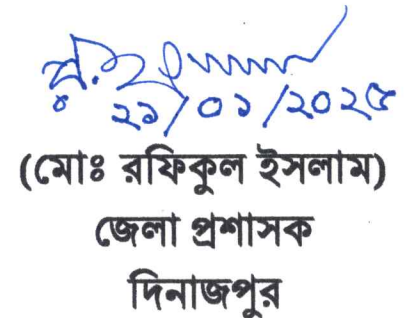 ২১/০১/২০২৫
(মোঃ রফিকুল ইসলাম)
জেলা প্রশাসক
দিনাজপুর